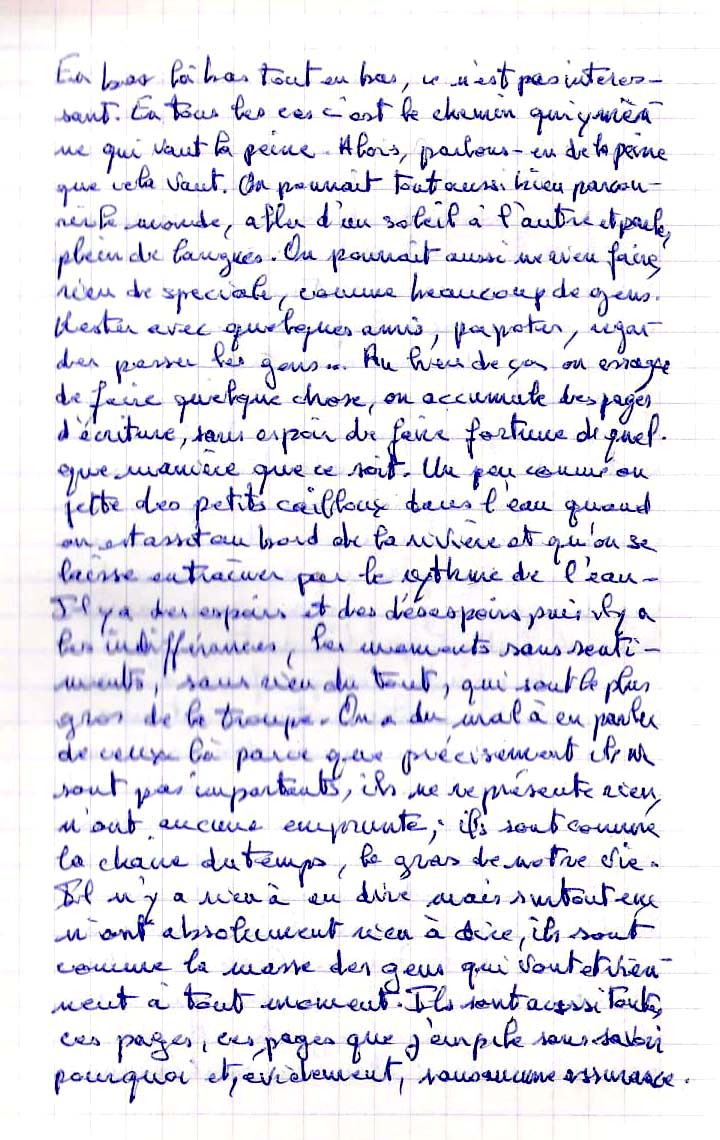 En bas là bas tout en bas, ce n'est pas interes-
sant. En tous les cas c'est le chemin qui y mèn
ne qui vaut la peine. Alors, parlons-en de la peine
que cela vaut. On pourrait tout aussi bien parcou-
rir le monde, aller d'un soleil à l'autre et parler
plein de langues. On pourrait aussi ne rien faire,
rien de speciale, comme beaucoup de gens.
Rester avec quelques amis, papoter, regar
der passer les gens... Au lieu de ças on essaye
de faire quelque chose, on accumule des pages
d'écriture, sans espoir de faire fortune de quel-
que manière que ce soit. Un peu comme on
jette des petits cailloux dans l'eau quand
on est assit au bord de la rivière et qu'on se
laisse entraîner par le rythme de l'eau-
Il y a des espoirs et des désespoirs puis il y a
les indifférences, les moments sans senti-
ments, sans rien du tout, qui sont le plus
gros de la troupe. On a du mal à en parler
de ceux là parce que précisément ils ne
sont pas importants, ils ne représente rien,
n'ont aucune emprunte, ils sont comme
la chaire du temps, le gras de notre vie.
Il n'y a rien à en dire mais surtout eux
n'ont absolument rien à dire, ils sont
comme la masse des gens qui vont et vien
nent à tout moment. Ils sont aussi toutes
ces pages, ces pages que j'empile sans savoir
pourquoi et, évidement, sans aucune assurance.